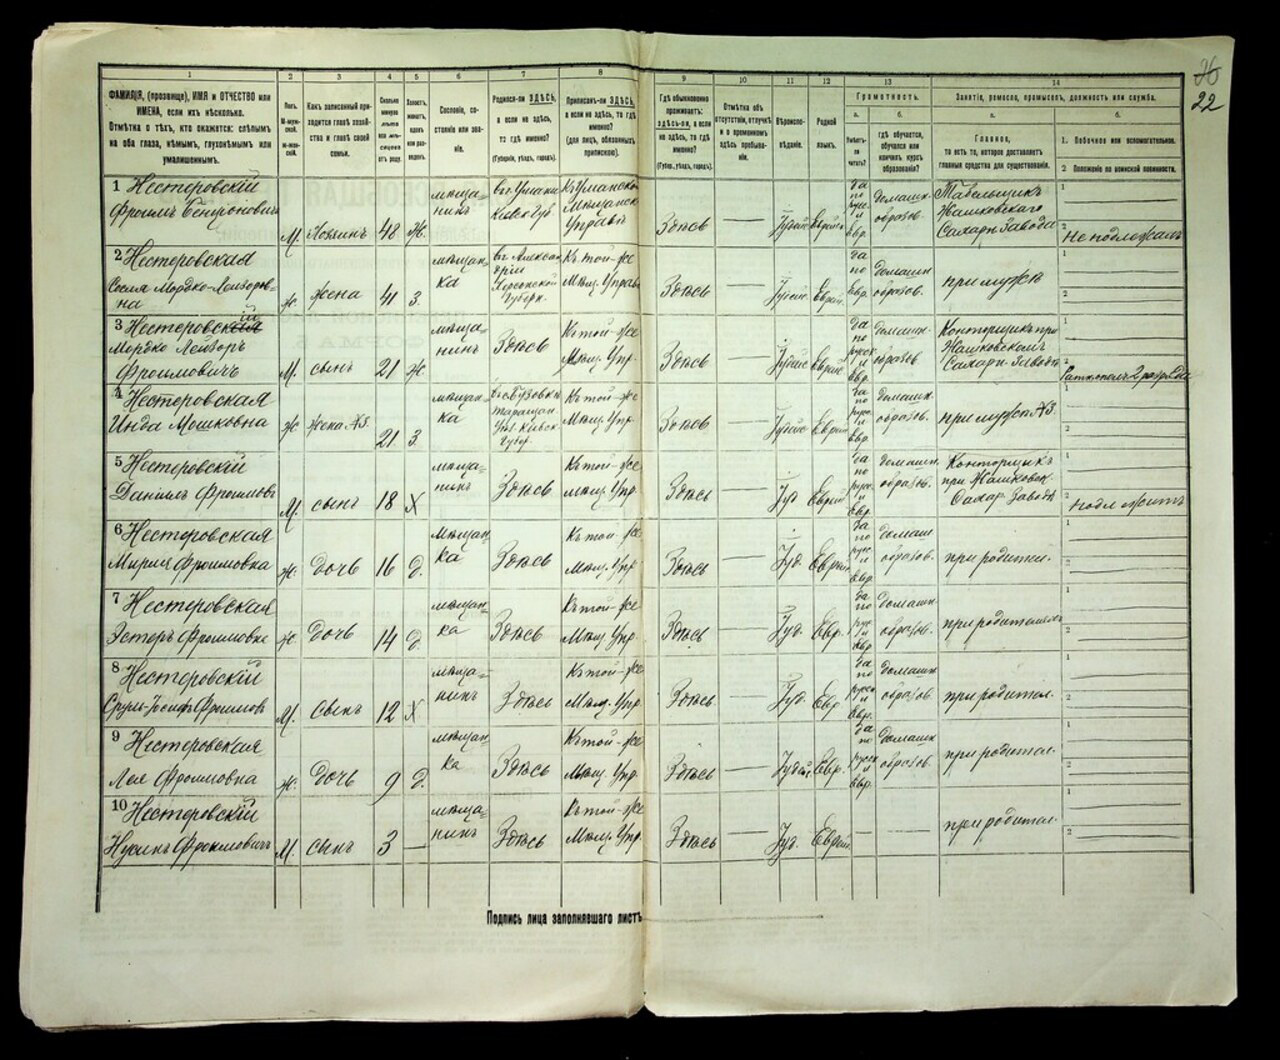 26
22
1
2
3
4
5
6
7
8
9
10
11
12
13
14
ФАМИЛІЯ, (прозвище), ИМЯ и ОТЧЕСТВО или
ИМЕНА, если ихъ нѣсколько.
Отмѣтка о тѣхъ, кто окажется: слѣпымъ
на оба глаза, нѣмымъ, глухонѣмымъ или
умалишеннымъ.
Полъ.
М-мужской.
Ж-женскій.
Какъ записанный приходится главѣ хозяйства и главѣ своей семьи.
Сколько минуло лѣтъ или мѣсяцевъ отъ роду.
Холостъ, женатъ, вдовъ или разведенъ.
Сословіе, состояніе или званіе.
Родился-ли ЗДѢСЬ,
а если не здѣсь,
то гдѣ именно?
(Губернія, уѣздъ, городъ).
Приписанъ-ли ЗДѢСЬ,
а если не здѣсь, то гдѣ
именно?
(для лицъ, обязанныхъ
припискою).
Гдѣ обыкновенно
проживаетъ:
здѣсь-ли, а если
не здѣсь, то гдѣ
именно?
(Губер., уѣздъ, городъ).
Отмѣтка объ
отсутствіи, отлучкѣ
и о временномъ
здѣсь пребываніи.
Вѣроисповѣданіе.
Родной
языкъ.
Грамотность.
а.
Умѣетъ-ли
читать?
б.
гдѣ обучается,
обучался или
кончилъ курсъ
образованія?
Занятіе, ремесло, промыселъ, должность или служба.
а.
Главное,
то есть то, которое доставляет
главныя средства для существованія.
б.
1. Побочное или вспомогательное.
2. Положеніе по воинской повинности.
1 Нестеровскій
Фроимъ Бенціоновичъ
М. Хозяинъ 48 Ж.
мѣщанинъ
въ г. Умани
Къ Уманской
Мѣщанской
Управѣ
Здѣсь — Іудейс Еврейс
да по русс и Евр.
домашн. образов.
Табельщикъ
Жашковскаго
Сахарн Завода
1
2 Не подлежалъ
2 Нестеровская
Сося Мордко-Лейзоровна
Ж. жена 41 З.
мѣщанка
въ г. Александріи
Херсонской
Губерн.
Къ той-же
Мѣщ. Управѣ
Здѣсь — Іудей. Еврей.
да по Евр.
домашн образов.
при мужѣ
1
2
3 Нестеровскій
Мордко Лейзоръ
Фроимовичъ
М. сынъ 21 Ж
мѣщанинъ
Здѣсь
Къ той-же
Мѣщ. Упр.
Здѣсь — Іудейс Еврейс
да по русск и Евр.
домашн. образов
Конторщикъ при
Жашковскомъ
Сахарн. Заводѣ
1
2 Ратникъ 2 разряда
4 Нестеровская
Инда Мошковна
Ж жена №3. 21 З.
мѣщанка
Таращан.
Къ той-же
Мѣщ. Упр.
Здѣсь — Іудейс Еврей
да по русс и Евр.
домашн. образов.
при мужѣ №3.
1
2
5 Нестеровскій
Даніилъ Фроимов
М. сынъ 18 Х
мѣщанинъ
Здѣсь
Къ той-же
мѣщ. Упр.
Здѣсь — Іуд Еврей
да по русс и Евр.
домашн. образов.
Конторщикъ
при Жашковск.
Сахар. Заводѣ
1
2 подлежитъ
6 Нестеровская
Мирия Фроимовка
Ж. Дочь 16 Д.
мѣщанка
Здѣсь
Къ той-же
Мѣщ. Упр.
Здѣсь — Іуд. Еврей
да по рус. и Евр.
домаш образов.
при родител.
1
2
7 Нестеровская
Эстеръ Фроимовка
Ж. Дочь 14 Д.
мѣщанка
Здѣсь
Къ той-же
Мѣщ. Упр.
Здѣсь — Іуд. Евр.
да по рус и Евр.
домашн образов.
при родителяхъ
1
2
8 Нестеровскій
Сруль-Іосифъ Фроимов
М. Сынъ 12 Х
мѣщанинъ
Здѣсь
Къ той-же
Мѣщ. Упр.
Здѣсь — Іуд. Евр
да по русск и Евр.
домашн образов.
при родител.
1
2
9 Нестеровская
Лея Фроимовна
Ж. Дочь 9 Д.
мѣщанка
Здѣсь
Къ той-же
Мѣщ. Упр.
Здѣсь — Іудей. Евр.
да по русск и Евр.
домашн образов.
при родител.
1
2
10 Нестеровскій
Нухинъ Фроимовичъ
М. сынъ 3 —
мѣщанинъ
Здѣсь
Къ той-же
Мѣщ. Упр.
Здѣсь — Іуд. Еврей
— —
при родител.
1
2
Подпись лица заполнявшаго листъ